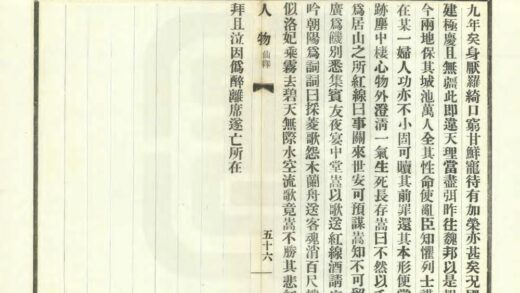 九年矣身厭羅綺口窮甘鮮寵待有加榮亦甚矣况國
建極慶且無疆此即違天理當盡弭昨往魏邦以是
今兩地保其城池萬人全其性命使亂臣知懼列士謀
在某一婦人功亦不小固可贖其前罪還其本形便
跡塵中棲心物外澄清一氣生死長存嵩曰不然以千
爲居山之所紅線曰事關來世安可預謀嵩知不可留
廣爲餞別悉集賓友夜宴中堂嵩以歌送紅線酒請
吟朝陽爲詞詞曰採菱歌怨木蘭舟送客魂消百尺樓
似洛妃乘霧去碧天無際水空流歌竟嵩不勝其悲紅
人物 仙釋 五十六
拜且泣因僞醉離席遂亡所在